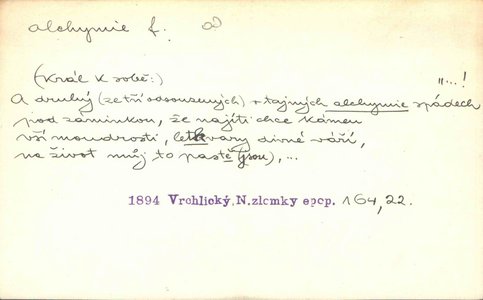 alchymie f. ∞
(Král k sobě:) „...!
A druhý (ze tří odsouzených) v tajných alchymie spádech
pod záminkou, že najíti chce kámen
vší moudrosti, letkvary divné váří,
na život můj to pastě (jsou), ...
1894 Vrchlický, N.zlomky epop. 164, 22.